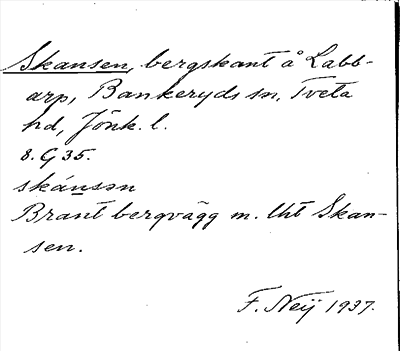 Skansen, bergskant å Labb-
arp, Bankeryds sn, Tveta
hd, Jönk. l.
8. G 35.
skánsən
Brant bergvägg m. Uht Skan-
sen.
F. Neij 1937.